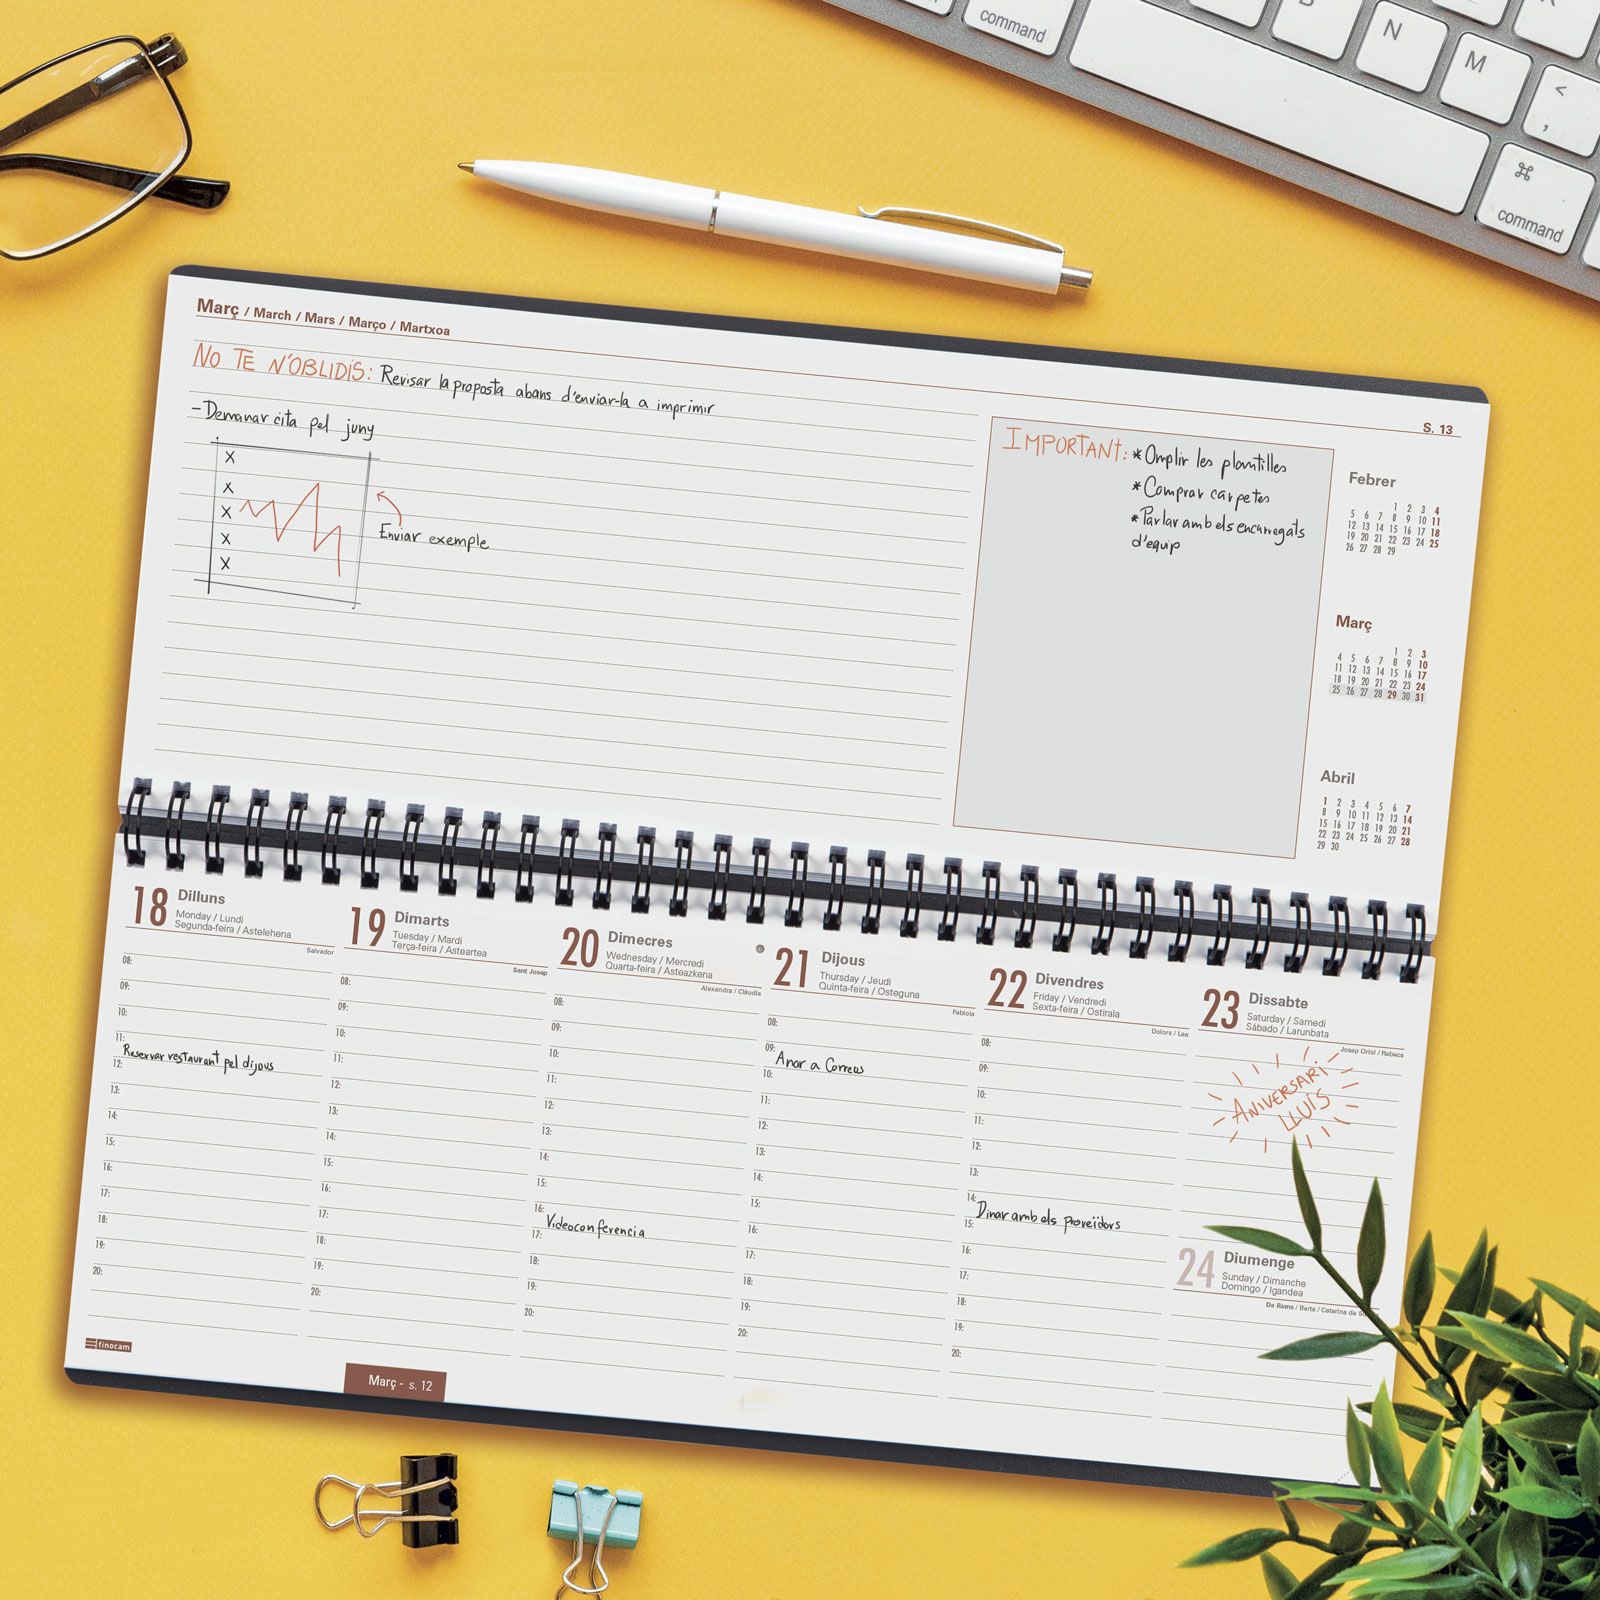 command
B
N
M
<
,
⌘
command
Març / March / Mars / Março / Martxoa
S. 13
NO TE N'OBLIDIS: Revisar la proposta abans d'enviar-la a imprimir
-Demanar cita pel juny
x
x
x
x
x
Enviar exemple
IMPORTANT: *Omplir les plantilles
*Comprar carpetes
*Parlar amb els encarregats
d'equip
Febrer
1 2 3 4
5 6 7 8 9 10 11
12 13 14 15 16 17 18
19 20 21 22 23 24 25
26 27 28 29
Març
1 2 3
4 5 6 7 8 9 10
11 12 13 14 15 16 17
18 19 20 21 22 23 24
25 26 27 28 29 30 31
Abril
1 2 3 4 5 6 7
8 9 10 11 12 13 14
15 16 17 18 19 20 21
22 23 24 25 26 27 28
29 30
18 Dilluns
Monday / Lundi
Segunda-feira / Astelehena
Salvador
08:
09:
10:
11:
Reservar restaurant pel dijous
12:
13:
14:
15:
16:
17:
18:
19:
20:
19 Dimarts
Tuesday / Mardi
Terça-feira / Asteartea
Sant Josep
08:
09:
10:
11:
12:
13:
14:
15:
16:
17:
18:
19:
20:
20 Dimecres
Wednesday / Mercredi
Quarta-feira / Asteazkena
Alexandra / Clàudia
08:
09:
10:
11:
12:
13:
14:
15:
16:
Videoconferencia
17:
18:
19:
20:
21 Dijous
Thursday / Jeudi
Quinta-feira / Osteguna
Fabiola
08:
09:
Anar a Correus
10:
11:
12:
13:
14:
15:
16:
17:
18:
19:
20:
22 Divendres
Friday / Vendredi
Sexta-feira / Ostirala
Dolors / Lea
08:
09:
10:
11:
12:
13:
14:
Dinar amb els proveïdors
15:
16:
17:
18:
19:
20:
23 Dissabte
Saturday / Samedi
Sábado / Larunbata
Josep Oriol / Rebeca
ANIVERSARI
LLUÍS
24 Diumenge
Sunday / Dimanche
Domingo / Igandea
De Rams / Berta / Caterina de
finocam
Març - s. 12